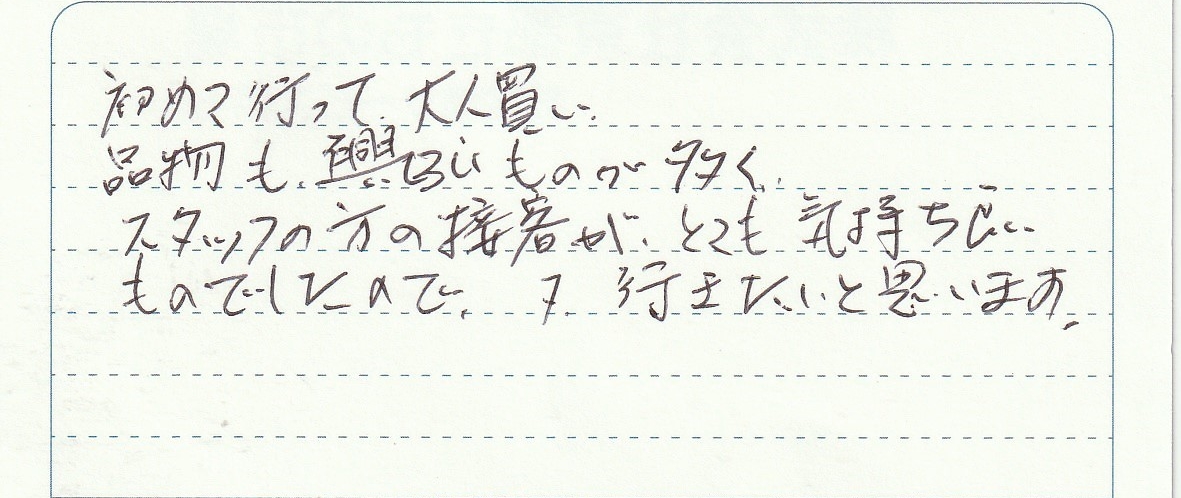 初めて行って、大人買い。
品物も、興味深いものが多く、
スタッフの方の接客が、とても気持ち良い
ものでしたので、又、行きたいと思います。